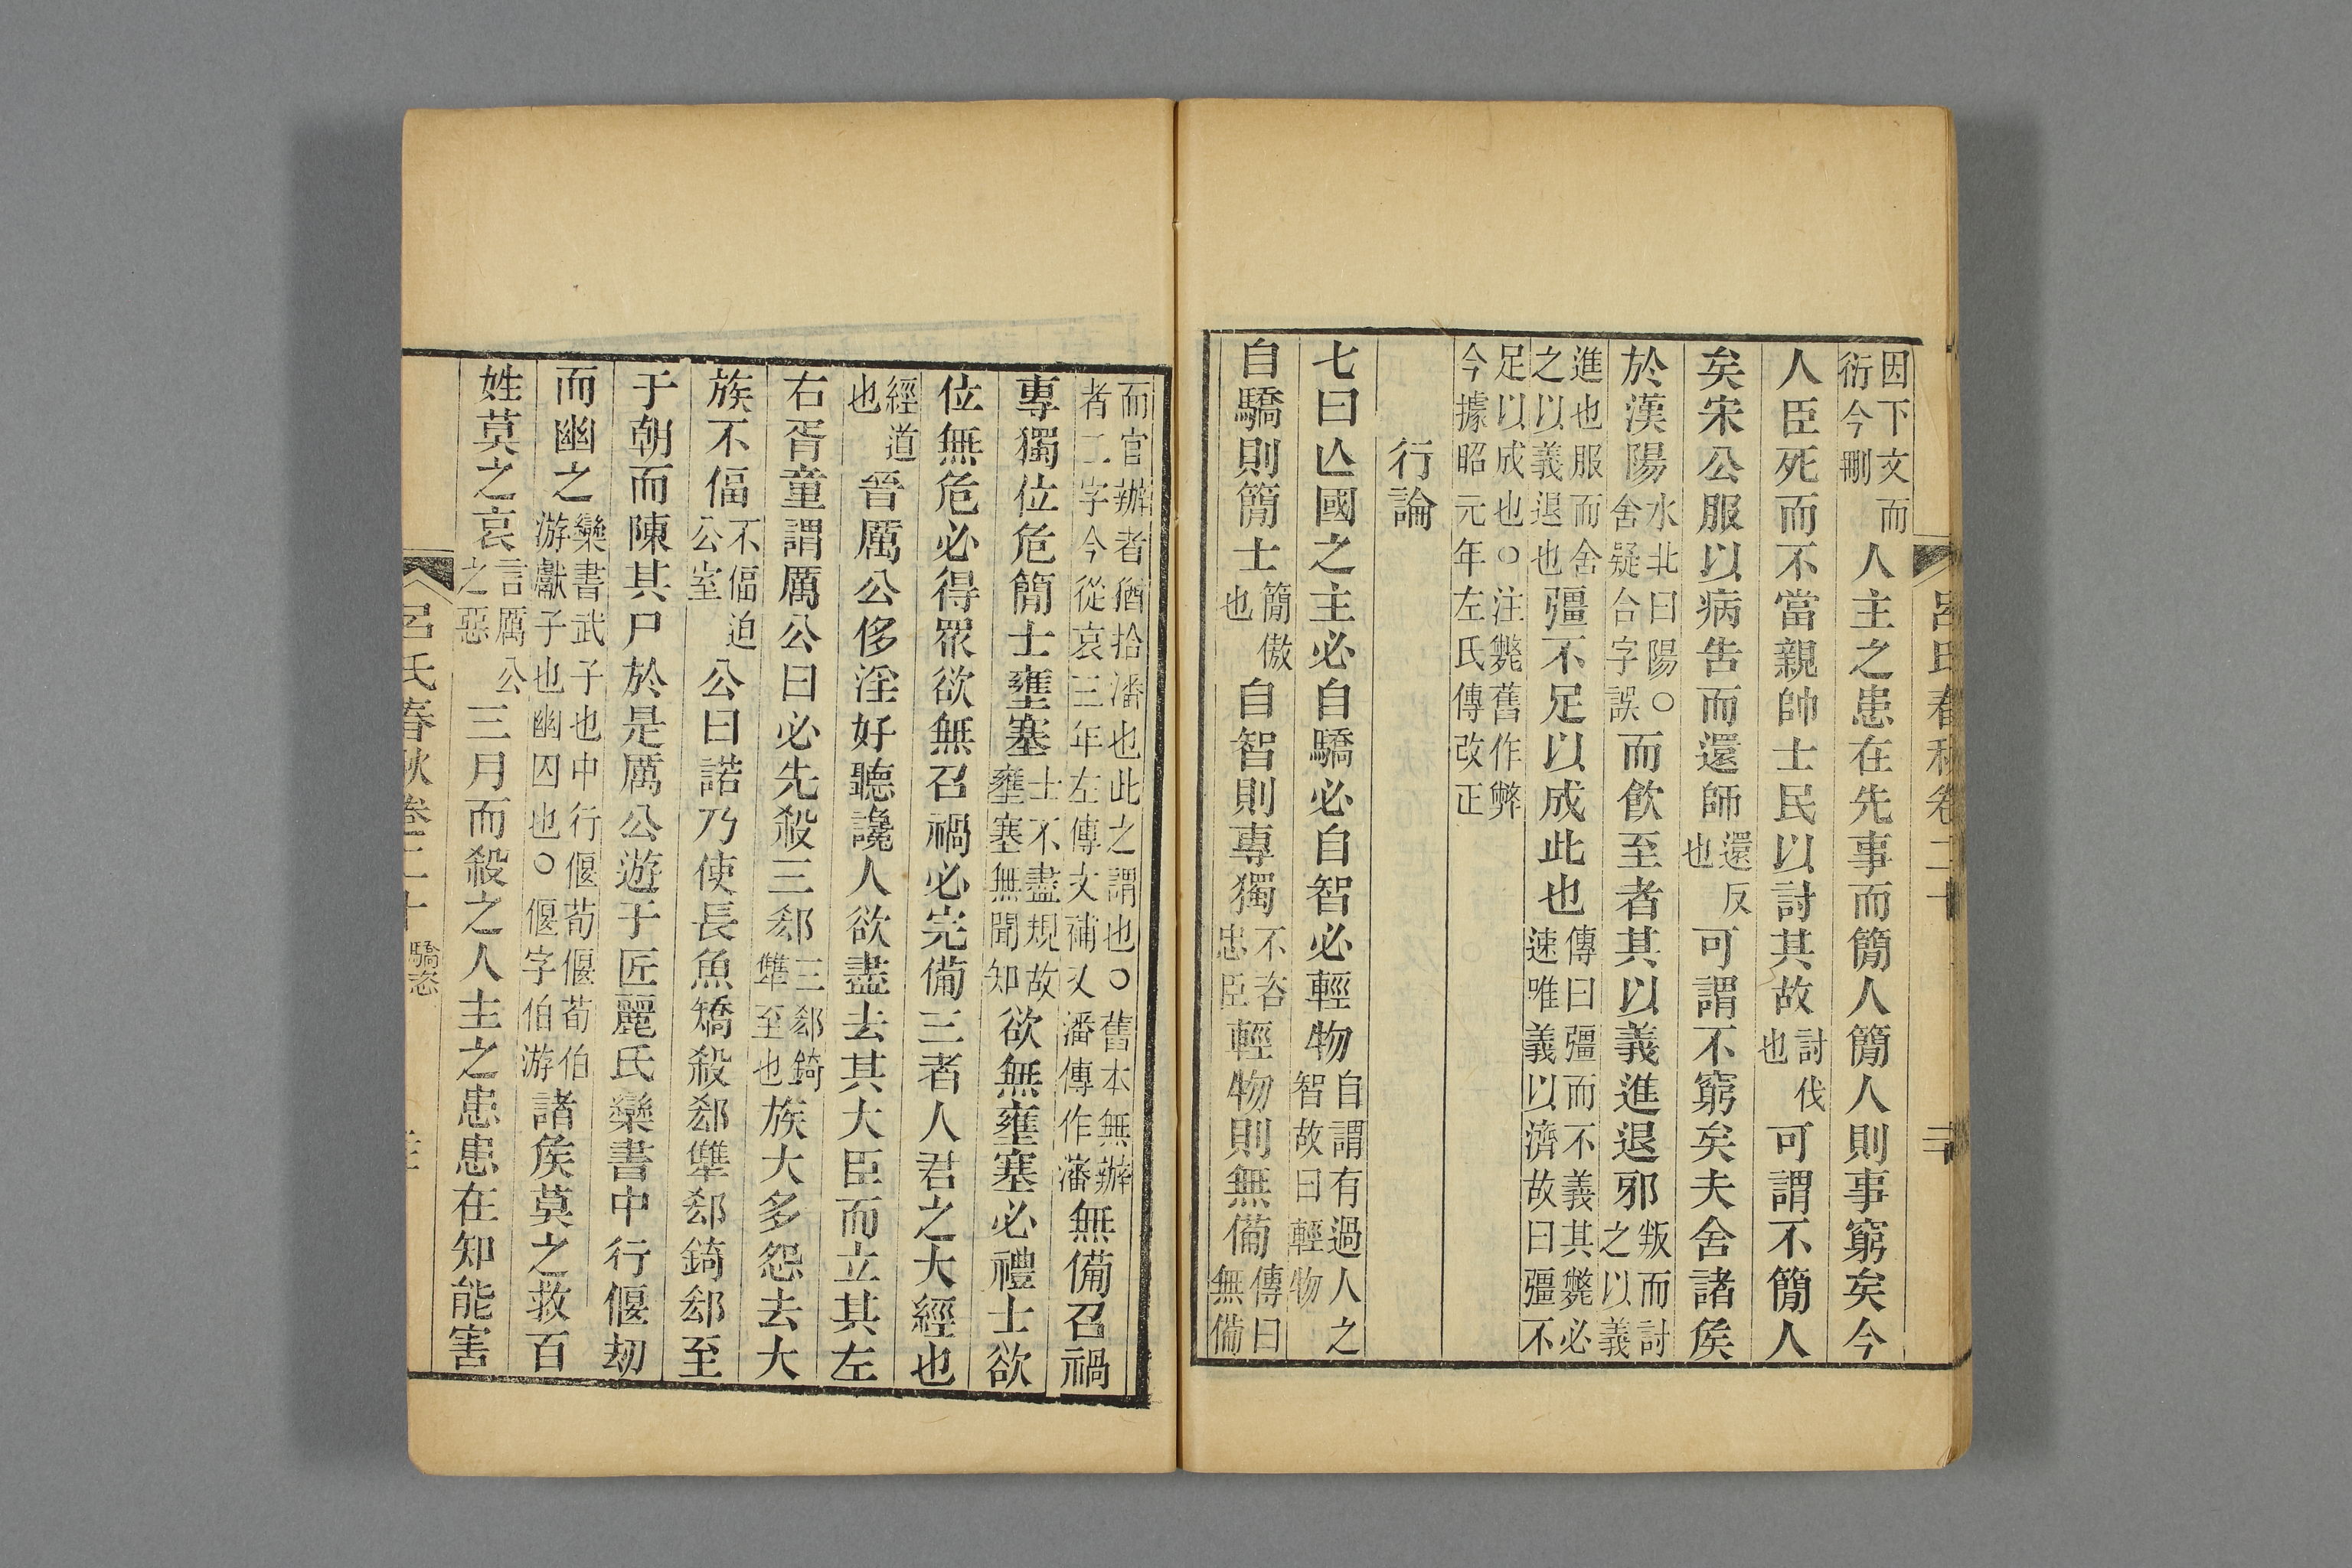 因下文而衍今刪人主之患在先事而簡人簡人則事窮矣今
人臣死而不當親帥士民以討其故討伐也可謂不簡人
矣宋公服以病告而還師還反也可謂不窮矣夫舍諸矦
於漢陽水北曰陽○舍疑合字誤而飮至者其以義進退邪叛而討之以義
進也服而舍之以義退也彊不足以成此也傳曰彊而不義其斃必速唯義以濟故曰彊不
足以成也○注斃舊作弊今據昭元年左氏傳改正
行論
七曰亾國之主必自驕必自智必輕物自謂有過人之智故曰輕物
自驕則簡士簡傲也自智則專獨不咨忠臣輕物則無備傳曰無備
呂氏春秋卷二十
而官辦者猶拾瀋也此之謂也○舊本無辦者二字今從哀三年左傳文補又瀋傳作藩無備召禍
專獨位危簡士壅塞士不盡規故壅塞無聞知欲無壅塞必禮士欲
位無危必得眾欲無召禍必完備三者人君之大經也
經道也晉厲公侈淫好聽讒人欲盡去其大臣而立其左
右胥童謂厲公曰必先殺三郄三郄錡犨至也族大多怨去大
族不偪不偪迫公室公曰諾乃使長魚矯殺郄犨郄錡郄至
于朝而陳其尸於是厲公遊于匠麗氏欒書中行偃劫
而幽之欒書武子也中行偃荀偃荀伯游獻子也幽囚也○偃字伯游諸矦莫之救百
姓莫之哀言厲公之惡三月而殺之人主之患患在知能害
呂氏春秋卷二十 驕恣